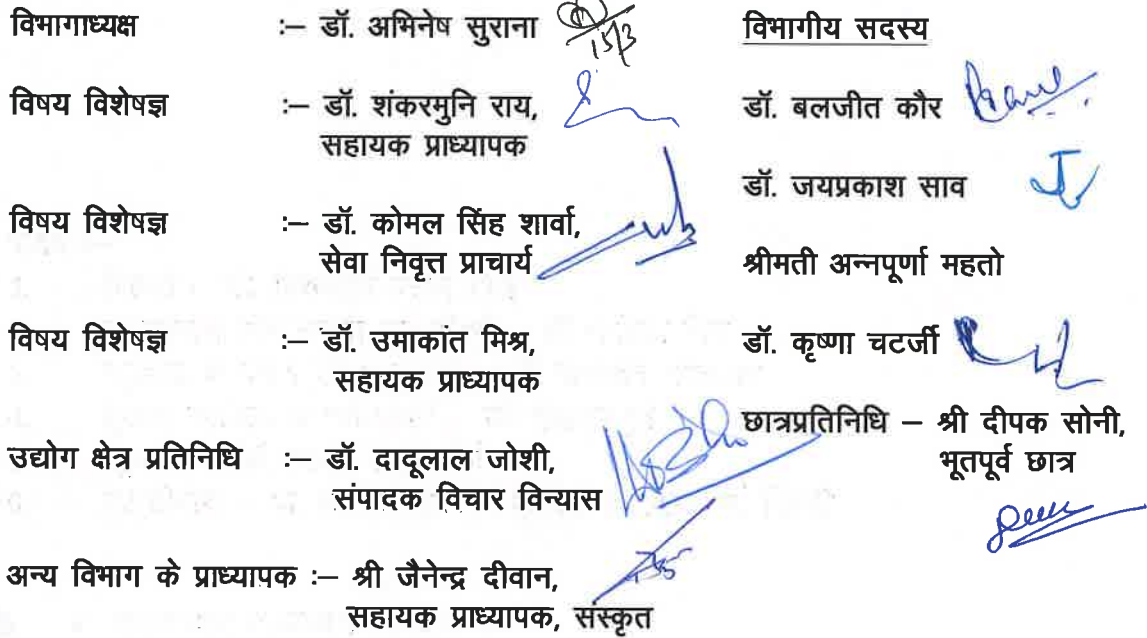 विमागाध्यक्ष :– डॉ. अभिनेष सुराना
15/3
विषय विशेषज्ञ :– डॉ. शंकरमुनि राय,
सहायक प्राध्यापक
विषय विशेषज्ञ :– डॉ. कोमल सिंह शार्वा,
सेवा निवृत्त प्राचार्य
विषय विशेषज्ञ :– डॉ. उमाकांत मिश्र,
सहायक प्राध्यापक
उद्योग क्षेत्र प्रतिनिधि :– डॉ. दादूलाल जोशी,
संपादक विचार विन्यास
अन्य विभाग के प्राध्यापक :– श्री जैनेन्द्र दीवान,
सहायक प्राध्यापक, संस्कृत
विभागीय सदस्य
डॉ. बलजीत कौर
डॉ. जयप्रकाश साव
श्रीमती अन्नपूर्णा महतो
डॉ. कृष्णा चटर्जी
छात्रप्रतिनिधि – श्री दीपक सोनी,
भूतपूर्व छात्र